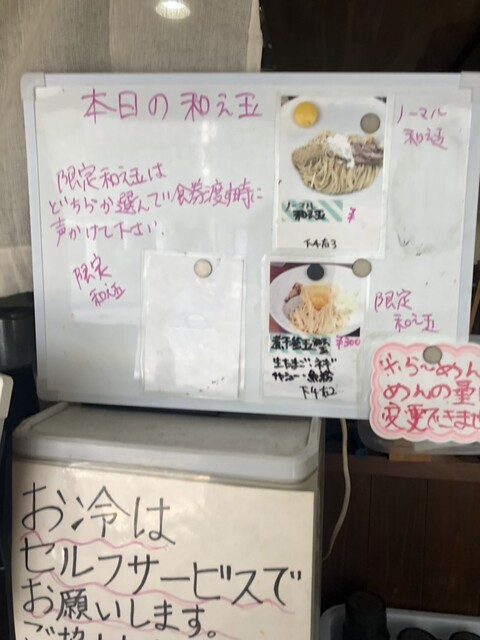 本日の和え玉
限定和え玉は
どちらか選んで食券渡す時に
声かけて下さい.
限定
和え玉
ノーマル
和え玉
ノーマル
和え玉 ¥
下4右3
限定
和え玉
¥300
生たまご・ネギ
チャシュー・魚粉
下4右2
※らーめん
めんの量
変更できませ
お冷は
セルフサービスで
お願いします。
ご協